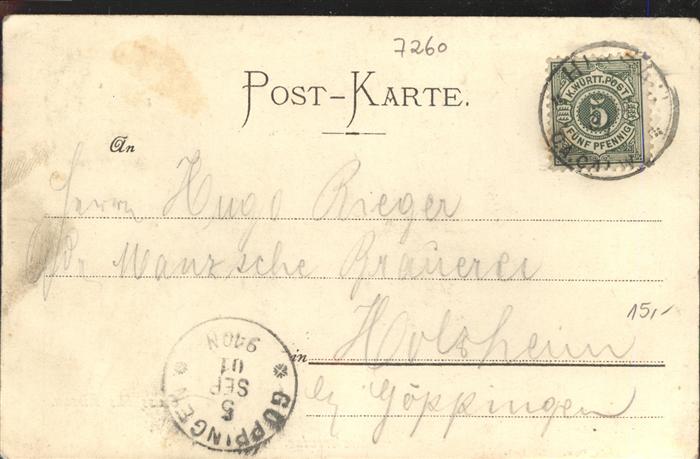 7260
POST-KARTE.
K. WÜRTT. POST
5
FÜNF PFENNIG
An
Herrn Hugo Rieger
Manz'sche Brauerei
15,-
in Holzheim
by Göppingen
GÖPPINGEN
5
SEP
01
9-10 N